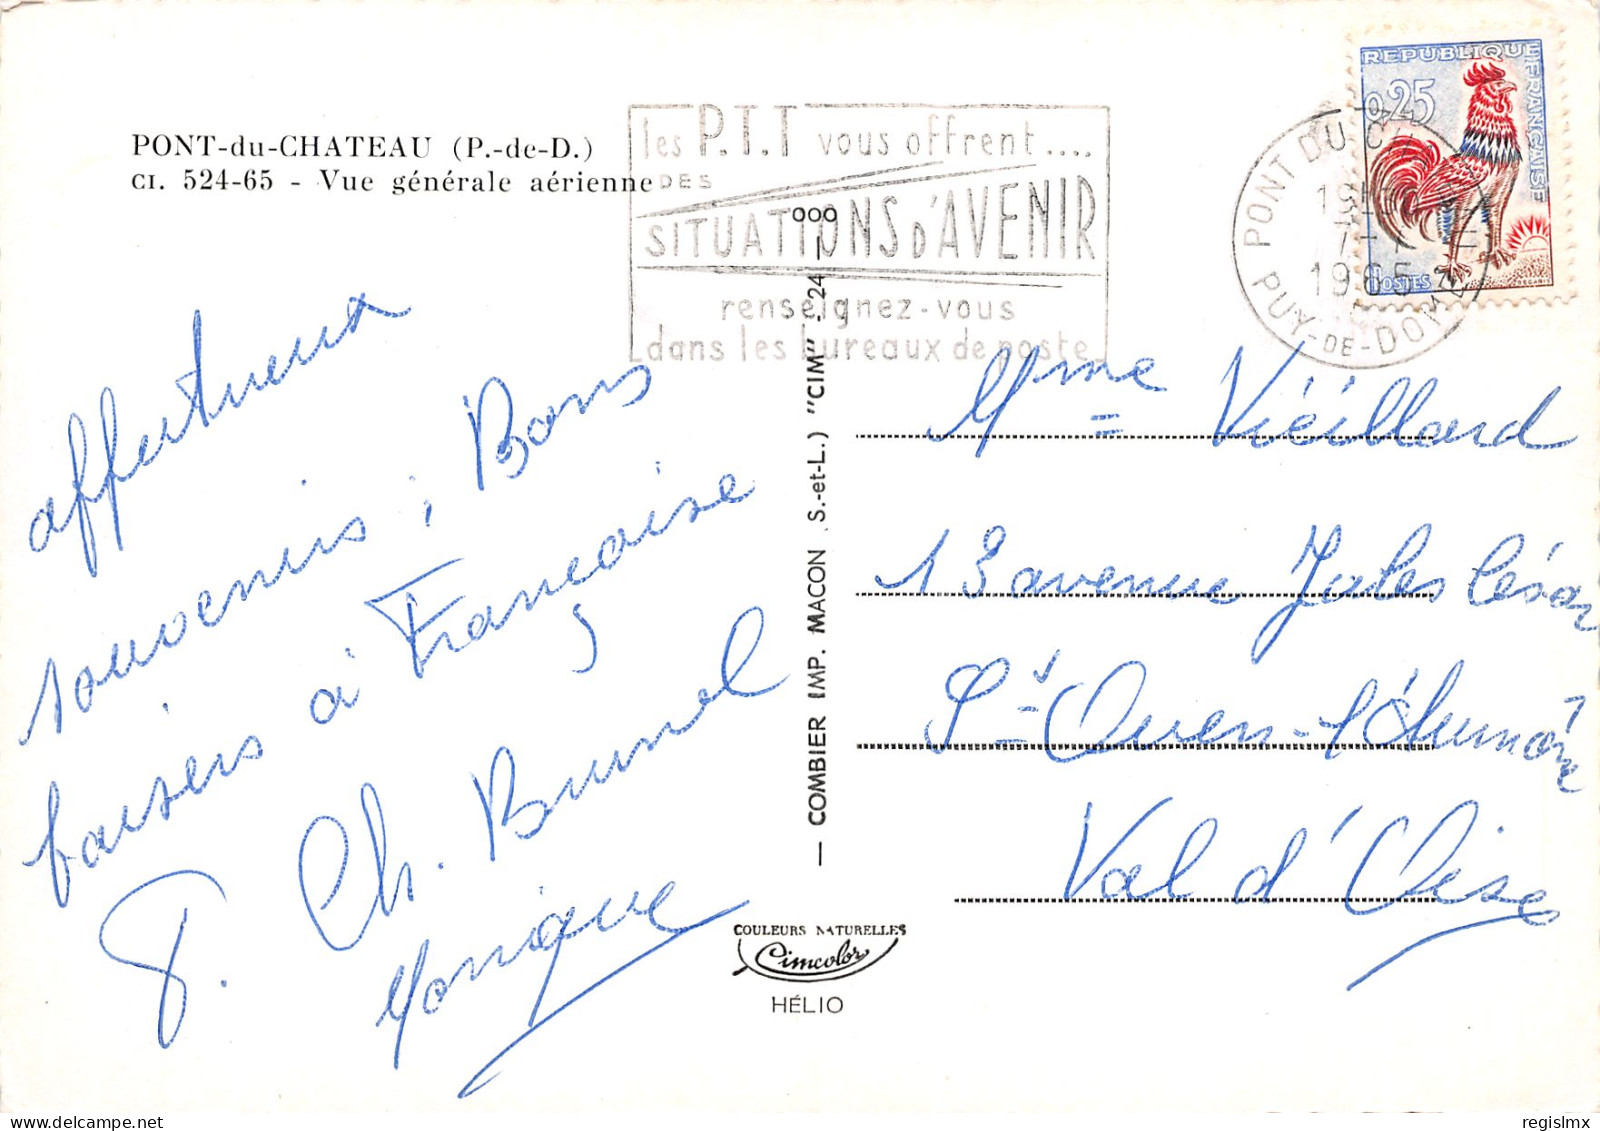 PONT-du-CHATEAU (P.-de-D.)
CI. 524-65 - Vue générale aérienne
les P.T.T vous offrent....
DES
SITUATIONS D'AVENIR
renseignez-vous
dans les bureaux de poste
REPUBLIQUE FRANÇAISE
0,25
POSTES
PONT DU C
19H
7-
1965
PUY-DE-DOME
affectueux
souvenirs ; Bons
baisers à Françoise
P. Ch. Brunel
Monique
— COMBIER IMP. MACON (S.-et-L.) "CIM" - 24
COULEURS NATURELLES
Cimcolor
HÉLIO
Mme Viéillard
13 avenue Jules César
St Ouen-l'Aumône
Val d'Oise
delcampe.net
regislmx